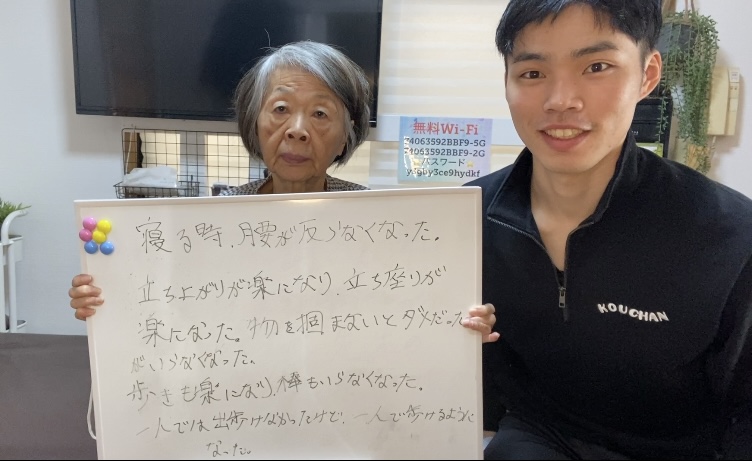 無料Wi-Fi
74063592BBF9-5G
74063592BBF9-2G
パスワード
y4gby3ce9hydkf
KOUCHAN
寝る時、腰が反らなくなった。
立ち上がりが楽になり、立ち座りが
楽になった。物を掴まないとダメだった
がいらなくなった。
歩きも楽になり、棒もいらなくなった。
一人では出歩けなかったけど、一人で歩けるように
なった。